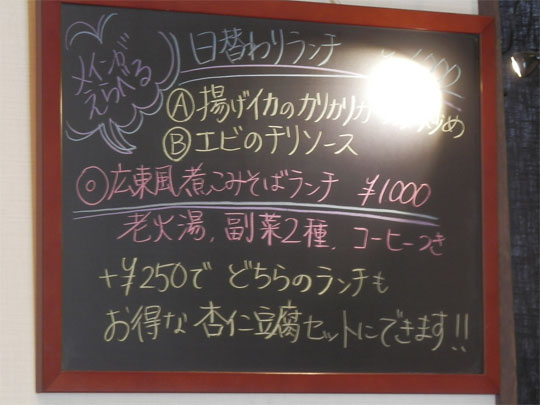 メインが
えらべる
日替わりランチ
Ⓐ揚げイカのカリカリガ 炒め
Ⓑエビのチリソース
◎広東風煮こみそばランチ ¥1000
老火湯、副菜2種、コーヒーつき
+¥250で どちらのランチも
お得な杏仁豆腐セットにできます!!